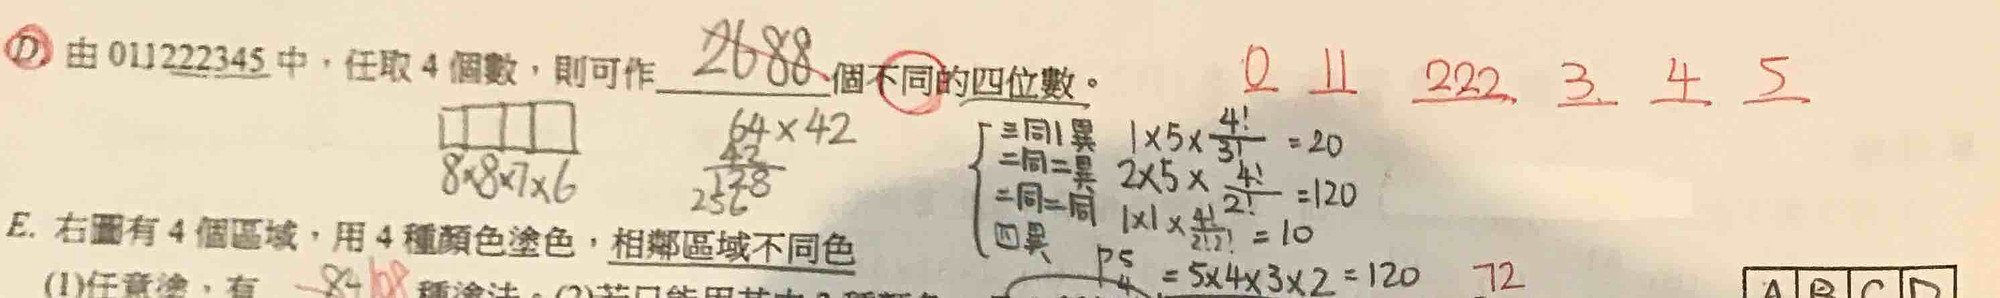 D 由 011222345 中，任取 4 個數，則可作 2688 個不同的四位數。
0 11 222 3 4 5
8×8×7×6
64×42
42
128
256
三同1異 1×5×4!/3! =20
二同二異 2×5×4!/2! =120
二同二同 1×1×4!/2!2! =10
四異 P 5 4 =5×4×3×2=120
72
E. 右圖有 4 個區域，用 4 種顏色塗色，相鄰區域不同色
(1)任意塗，有 84 108 種塗法。(2)若只能用其中
A B C D